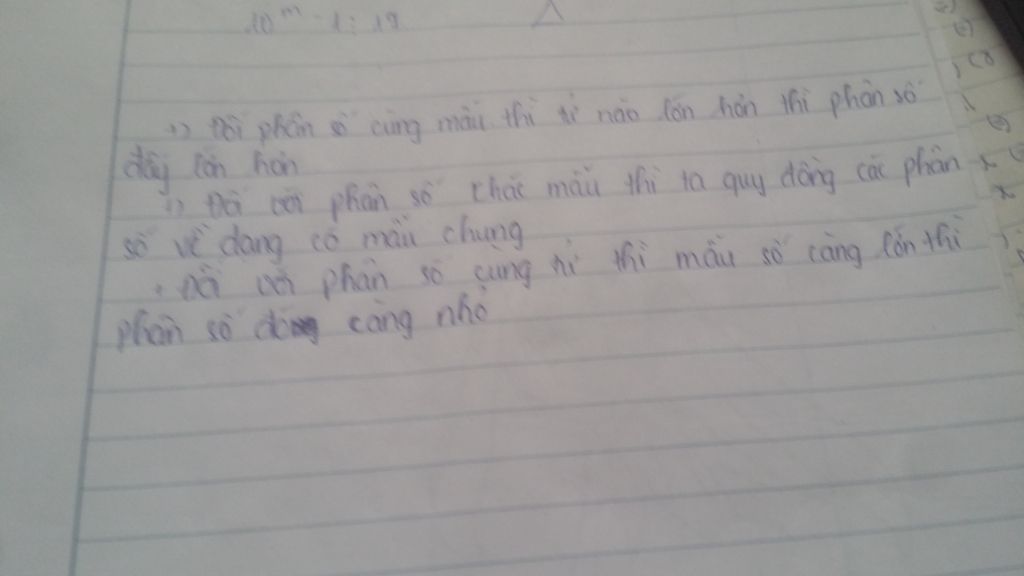 10ᵐ - 1 : 19
Đối phân số cùng mẫu thì tử nào lớn hơn thì phân số
đấy lớn hơn
Đối với phân số khác mẫu thì ta quy đồng các phân
số về dạng có mẫu chung
Đối với phân số cùng tử thì mẫu số càng lớn thì
phân số càng nhỏ